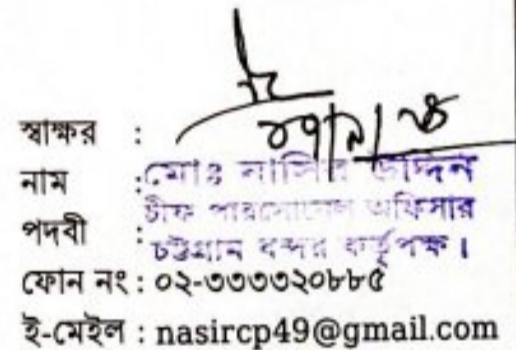 স্বাক্ষর :
নাম : মোঃ নাসির উদ্দিন
পদবী : চীফ পারসোনেল অফিসার
চট্টগ্রাম বন্দর কর্তৃপক্ষ।
ফোন নং : ০২-৩৩৩৩২০৮৮৫
ই-মেইল : nasircp49@gmail.com